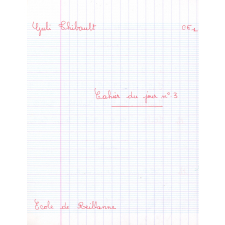 Thibault
CE1
Cahier du jour n° 3
Ecole de Reillanne